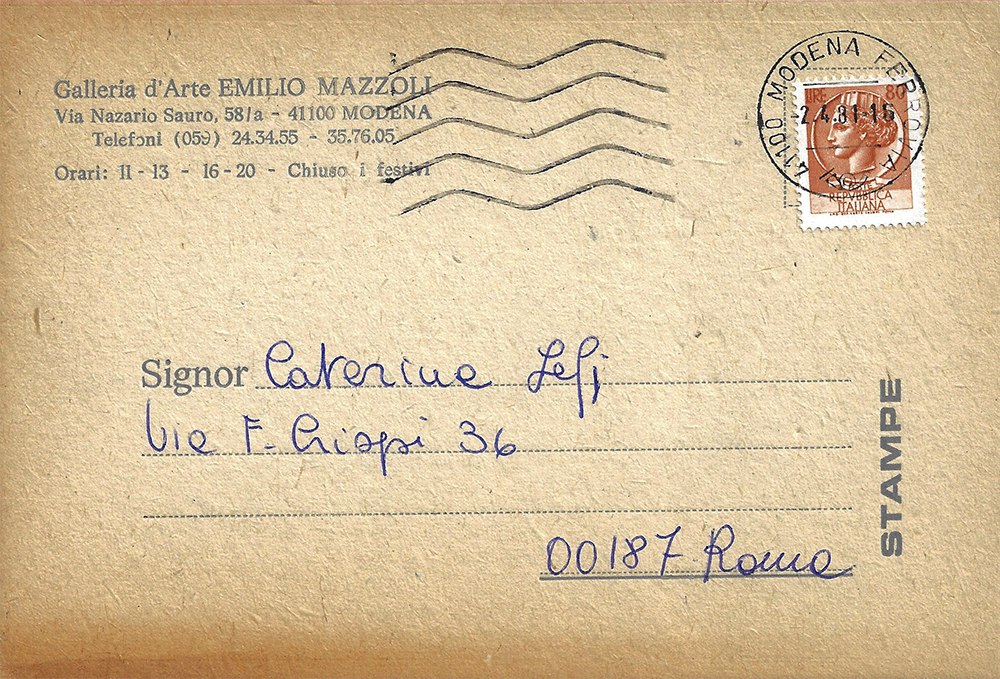 Galleria d'Arte EMILIO MAZZOLI
Via Nazario Sauro, 58/a - 41100 MODENA
Telefoni (059) 24.34.55 - 35.76.05
Orari: 11 - 13 - 16 - 20 - Chiuso i festivi
41100 MODENA FERROVIA
2.4.81-16
LIRE 80
REPVBBLICA
ITALIANA
Signor Caterina
Via F. Crispi 36
00187 Roma
STAMPE